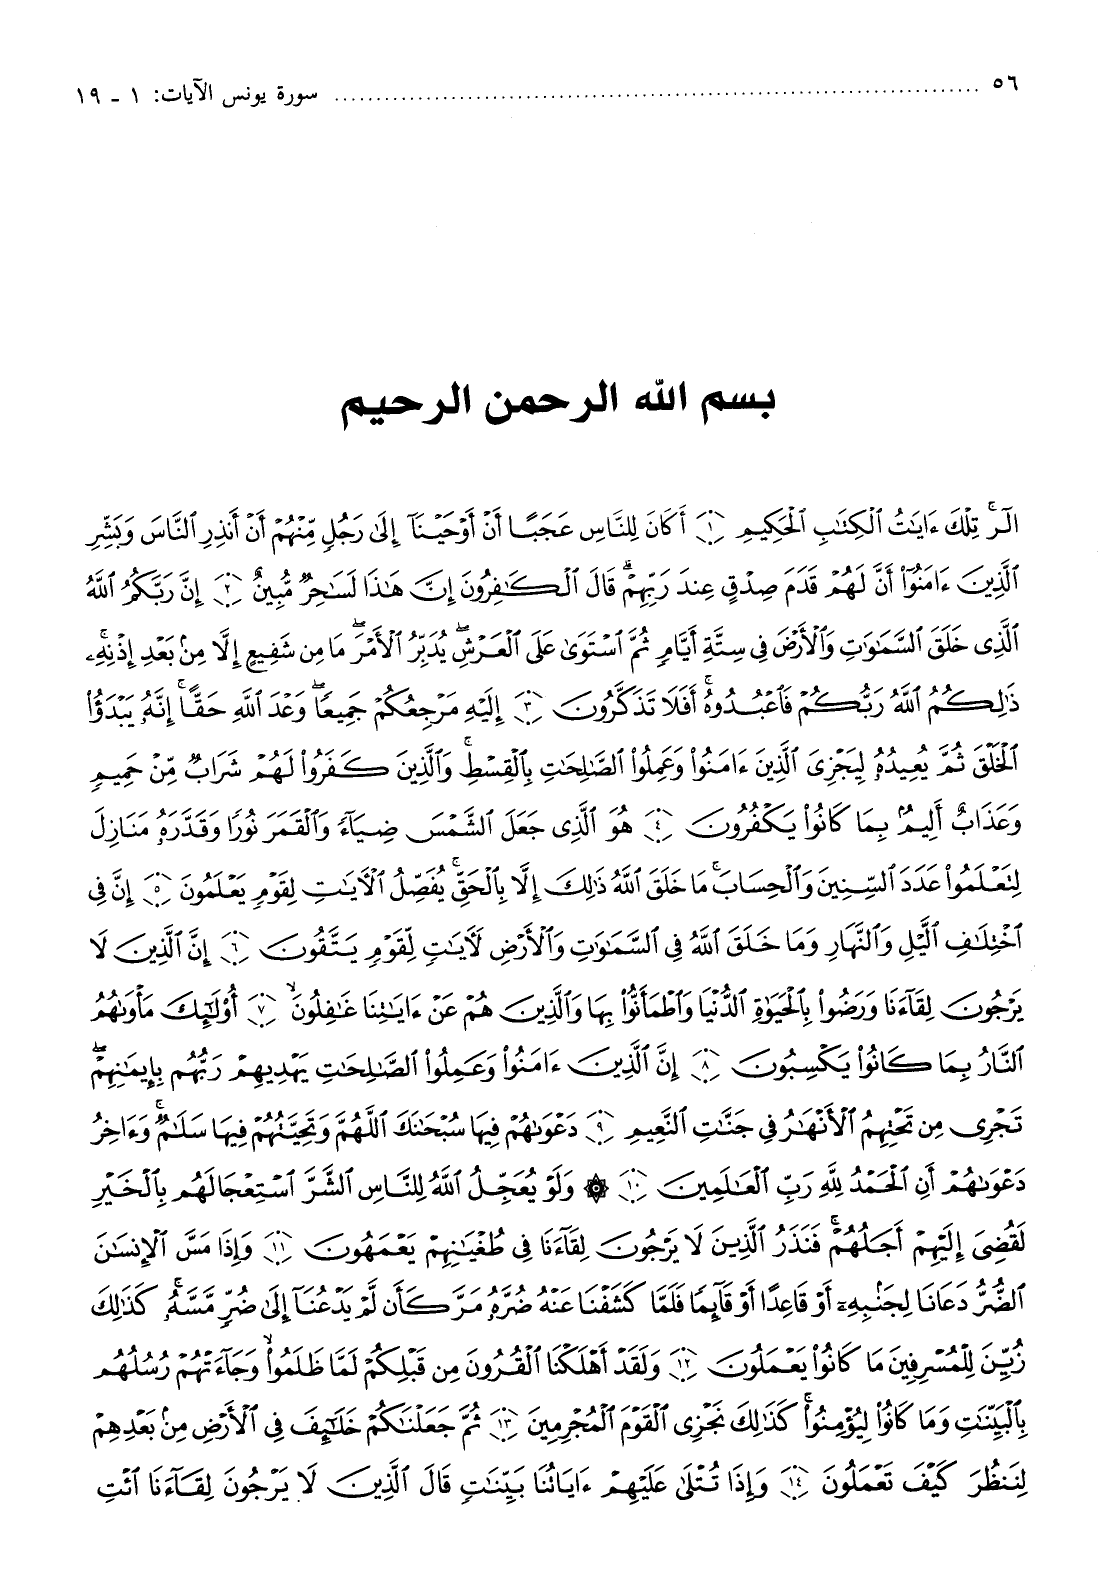 ٥٦ ........................ سورة يونس الآيات: ١ - ١٩
بسم الله الرحمن الرحيم
الٓرۚ تِلۡكَ ءَايَٰتُ ٱلۡكِتَٰبِ ٱلۡحَكِيمِ ۝١ أَكَانَ لِلنَّاسِ عَجَبًا أَنۡ أَوۡحَيۡنَآ إِلَىٰ رَجُلٖ مِّنۡهُمۡ أَنۡ أَنذِرِ ٱلنَّاسَ وَبَشِّرِ
ٱلَّذِينَ ءَامَنُوٓاْ أَنَّ لَهُمۡ قَدَمَ صِدۡقٍ عِندَ رَبِّهِمۡۗ قَالَ ٱلۡكَٰفِرُونَ إِنَّ هَٰذَا لَسَٰحِرٞ مُّبِينٌ ۝٢ إِنَّ رَبَّكُمُ ٱللَّهُ
ٱلَّذِي خَلَقَ ٱلسَّمَٰوَٰتِ وَٱلۡأَرۡضَ فِي سِتَّةِ أَيَّامٖ ثُمَّ ٱسۡتَوَىٰ عَلَى ٱلۡعَرۡشِۖ يُدَبِّرُ ٱلۡأَمۡرَۖ مَا مِن شَفِيعٍ إِلَّا مِنۢ بَعۡدِ إِذۡنِهِۦۚ
ذَٰلِكُمُ ٱللَّهُ رَبُّكُمۡ فَٱعۡبُدُوهُۚ أَفَلَا تَذَكَّرُونَ ۝٣ إِلَيۡهِ مَرۡجِعُكُمۡ جَمِيعٗاۖ وَعۡدَ ٱللَّهِ حَقًّاۚ إِنَّهُۥ يَبۡدَؤُاْ
ٱلۡخَلۡقَ ثُمَّ يُعِيدُهُۥ لِيَجۡزِيَ ٱلَّذِينَ ءَامَنُواْ وَعَمِلُواْ ٱلصَّٰلِحَٰتِ بِٱلۡقِسۡطِۚ وَٱلَّذِينَ كَفَرُواْ لَهُمۡ شَرَابٞ مِّنۡ حَمِيمٖ
وَعَذَابٌ أَلِيمُۢ بِمَا كَانُواْ يَكۡفُرُونَ ۝٤ هُوَ ٱلَّذِي جَعَلَ ٱلشَّمۡسَ ضِيَآءٗ وَٱلۡقَمَرَ نُورٗا وَقَدَّرَهُۥ مَنَازِلَ
لِتَعۡلَمُواْ عَدَدَ ٱلسِّنِينَ وَٱلۡحِسَابَۚ مَا خَلَقَ ٱللَّهُ ذَٰلِكَ إِلَّا بِٱلۡحَقِّۚ يُفَصِّلُ ٱلۡأٓيَٰتِ لِقَوۡمٖ يَعۡلَمُونَ ۝٥ إِنَّ فِي
ٱخۡتِلَٰفِ ٱلَّيۡلِ وَٱلنَّهَارِ وَمَا خَلَقَ ٱللَّهُ فِي ٱلسَّمَٰوَٰتِ وَٱلۡأَرۡضِ لَأٓيَٰتٖ لِّقَوۡمٖ يَتَّقُونَ ۝٦ إِنَّ ٱلَّذِينَ لَا
يَرۡجُونَ لِقَآءَنَا وَرَضُواْ بِٱلۡحَيَوٰةِ ٱلدُّنۡيَا وَٱطۡمَأَنُّواْ بِهَا وَٱلَّذِينَ هُمۡ عَنۡ ءَايَٰتِنَا غَٰفِلُونَۙ ۝٧ أُوْلَٰٓئِكَ مَأۡوَىٰهُمُ
ٱلنَّارُ بِمَا كَانُواْ يَكۡسِبُونَ ۝٨ إِنَّ ٱلَّذِينَ ءَامَنُواْ وَعَمِلُواْ ٱلصَّٰلِحَٰتِ يَهۡدِيهِمۡ رَبُّهُم بِإِيمَٰنِهِمۡۖ
تَجۡرِي مِن تَحۡتِهِمُ ٱلۡأَنۡهَٰرُ فِي جَنَّٰتِ ٱلنَّعِيمِ ۝٩ دَعۡوَىٰهُمۡ فِيهَا سُبۡحَٰنَكَ ٱللَّهُمَّ وَتَحِيَّتُهُمۡ فِيهَا سَلَٰمٞۚ وَءَاخِرُ
دَعۡوَىٰهُمۡ أَنِ ٱلۡحَمۡدُ لِلَّهِ رَبِّ ٱلۡعَٰلَمِينَ ۝١٠ ۞ وَلَوۡ يُعَجِّلُ ٱللَّهُ لِلنَّاسِ ٱلشَّرَّ ٱسۡتِعۡجَالَهُم بِٱلۡخَيۡرِ
لَقُضِيَ إِلَيۡهِمۡ أَجَلُهُمۡۖ فَنَذَرُ ٱلَّذِينَ لَا يَرۡجُونَ لِقَآءَنَا فِي طُغۡيَٰنِهِمۡ يَعۡمَهُونَ ۝١١ وَإِذَا مَسَّ ٱلۡإِنسَٰنَ
ٱلضُّرُّ دَعَانَا لِجَنۢبِهِۦٓ أَوۡ قَاعِدًا أَوۡ قَآئِمٗا فَلَمَّا كَشَفۡنَا عَنۡهُ ضُرَّهُۥ مَرَّ كَأَن لَّمۡ يَدۡعُنَآ إِلَىٰ ضُرّٖ مَّسَّهُۥۚ كَذَٰلِكَ
زُيِّنَ لِلۡمُسۡرِفِينَ مَا كَانُواْ يَعۡمَلُونَ ۝١٢ وَلَقَدۡ أَهۡلَكۡنَا ٱلۡقُرُونَ مِن قَبۡلِكُمۡ لَمَّا ظَلَمُواْۙ وَجَآءَتۡهُمۡ رُسُلُهُم
بِٱلۡبَيِّنَٰتِ وَمَا كَانُواْ لِيُؤۡمِنُواْۚ كَذَٰلِكَ نَجۡزِي ٱلۡقَوۡمَ ٱلۡمُجۡرِمِينَ ۝١٣ ثُمَّ جَعَلۡنَٰكُمۡ خَلَٰٓئِفَ فِي ٱلۡأَرۡضِ مِنۢ بَعۡدِهِمۡ
لِنَنظُرَ كَيۡفَ تَعۡمَلُونَ ۝١٤ وَإِذَا تُتۡلَىٰ عَلَيۡهِمۡ ءَايَاتُنَا بَيِّنَٰتٖ قَالَ ٱلَّذِينَ لَا يَرۡجُونَ لِقَآءَنَا ٱئۡتِ